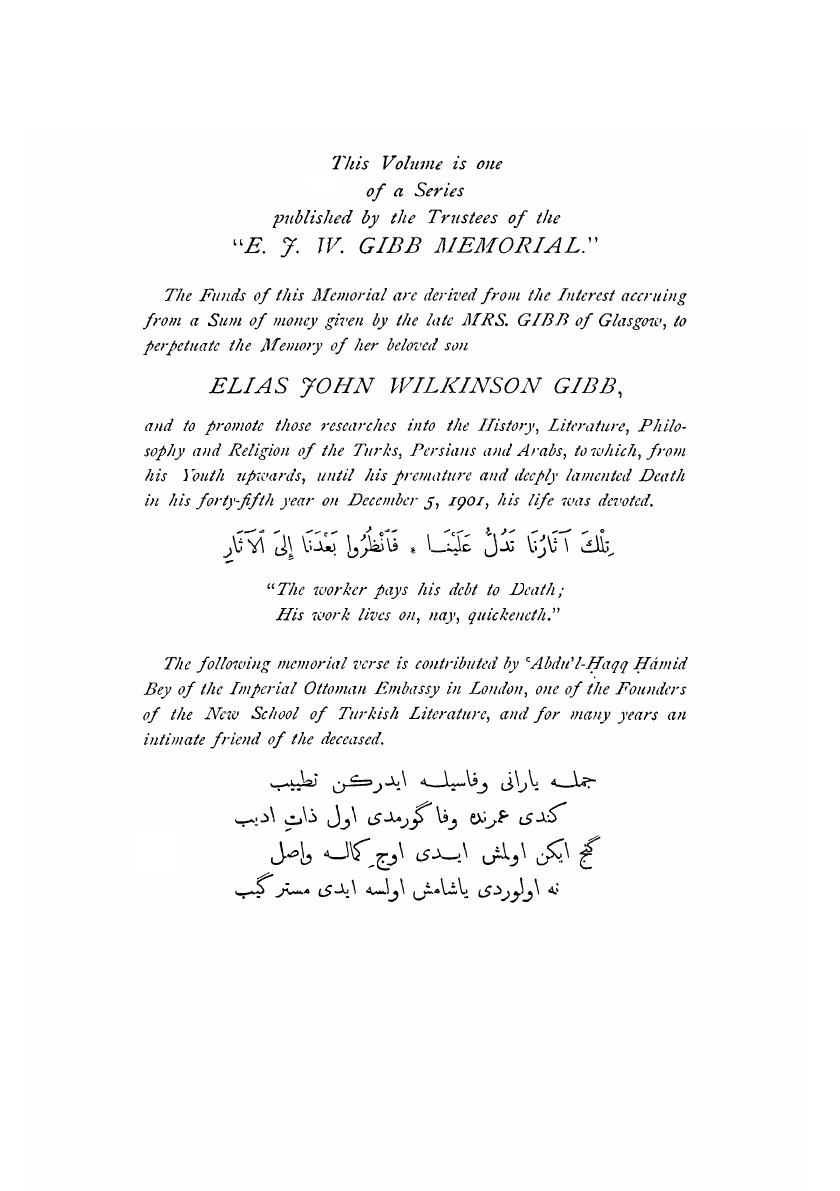 This Volume is one
of a Series
published by the Trustees of the
“E. J. W. GIBB MEMORIAL.”
The Funds of this Memorial are derived from the Interest accruing
from a Sum of money given by the late MRS. GIBB of Glasgow, to
perpetuate the Memory of her beloved son
ELIAS JOHN WILKINSON GIBB,
and to promote those researches into the History, Literature, Philo-
sophy and Religion of the Turks, Persians and Arabs, to which, from
his Youth upwards, until his premature and deeply lamented Death
in his forty-fifth year on December 5, 1901, his life was devoted.
تِلْكَ آثَارُنَا تَدُلُّ عَلَيْنَــا * فَٱنْظُرُوا بَعْدَنَا إِلَى ٱلْآثَارِ
“The worker pays his debt to Death;
His work lives on, nay, quickeneth.”
The following memorial verse is contributed by ʿAbdu’l-Ḥaqq Ḥámid
Bey of the Imperial Ottoman Embassy in London, one of the Founders
of the New School of Turkish Literature, and for many years an
intimate friend of the deceased.
جملــه يارانى وفاسيلــه ايدركن تطييب
كندى عمرنده وفا گورمدى اول ذاتِ اديب
گنج ايكن اولمش ايــدى اوجِ كمالــه واصل
نه اولوردى ياشامش اولسه ايدى مستر گيب